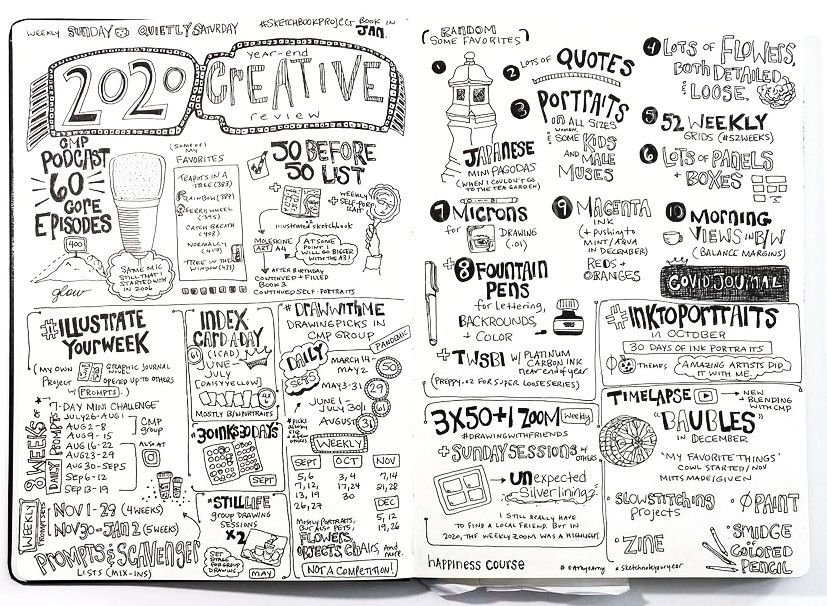 WEEKLY SUNDAY QUIETLY SATURDAY
#SKETCHBOOKPROJECT BOOK IN JAN.
year-end
2020 CREATIVE
review
CMP
PODCAST
60
CORE
EPISODES
400
glow
SAME MIC
STILL THAT I
STARTED WITH
IN 2006
(SOME OF)
MY
FAVORITES
TEAPOTS IN A
TREE (383)
RAINBOW (389)
FERRY WHEEL
(395)
CATCH BREATH
(408)
NORMALCY
(419)
TREE IN THE
WINDOW (433)
50 BEFORE
50 LIST
+ WEEKLY
SELF-PORTRAIT
x2
illustrated sketchbook
MOLESKINE
ART A4
AT SOME
POINT I
WILL GO BIGGER
WITH THE A3!
AFTER BIRTHDAY
CONTINUED + FILLED
BOOK 3
CONTINUED SELF-PORTRAITS
#ILLUSTRATE
YOURWEEK
(MY OWN
Project
w/
GRAPHIC JOURNAL
NOVEL
OPENED UP TO OTHERS
PROMPTS.)
8 WEEKS OF
DAILY PROMPTS
7-DAY MINI CHALLENGE
JULY 26-AUG 1
AUG 2-8
AUG 9-15
AUG 16-22
AUG 23-29
AUG 30-SEP 5
SEP 6-12
SEP 13-19
CMP
group
ALSO AT
WEEKLY
PROMPTS
NOV 1-29 (4 WEEKS)
NOV 30-JAN 2 (5 WEEKS)
PROMPTS & SCAVENGER
LISTS (MIX-INS)
INDEX
CARD-A-DAY
61
(ICAD)
JUNE-
JULY
(DAISY YELLOW)
MOSTLY B/W PORTRAITS
30 INKS 30 DAYS
SEPT
"STILL LIFE"
group DRAWING
SESSIONS
x2
SET
STAGE
FOR GROUP
DRAWING
MAY
#DRAWWITHME
DRAWING PICKS IN
CMP GROUP
PANDEMIC
DAILY
SETS
MARCH 14-
MAY 2
50
MAY 3-31
29
JUNE 1-
JULY 30
61
AUGUST
31
WEEKLY
SEPT
5, 6
7, 12,
13, 19
26, 27
OCT
3, 4
17, 24
30
NOV
7, 14
21, 28
DEC
5, 12
19, 26
MOSTLY PORTRAITS,
BUT ALSO PETS,
FLOWERS,
OBJECTS, CHAIRS, AND
more.
NOT A COMPETITION!
(RANDOM
SOME FAVORITES)
1
JAPANESE
MINI PAGODAS
(WHEN I COULDN'T GO
TO THE TEA GARDEN)
2 LOTS OF QUOTES
3 PORTRAITS
OF ALL SIZES
WOMEN,
SOME KIDS
AND MALE
MUSES
4 LOTS OF FLOWERS,
BOTH DETAILED
& LOOSE.
5 52 WEEKLY
GRIDS (#52WEEKS)
6 LOTS OF PANELS
+ BOXES
7 MICRONS
for DRAWING
(.01)
+8 FOUNTAIN
PENS
for Lettering,
BACKGROUNDS,
+ COLOR
+ TWSBI W/ PLATINUM
CARBON INK
near end of year
(PREPPY .02 FOR SUPER LOOSE SERIES)
9 MAGENTA
INK
(+ pushing to
MINT/AQUA
IN DECEMBER)
REDS +
ORANGES
10 MORNING
VIEWS IN B/W
(BALANCE MARGINS)
COVID JOURNAL
#INKTOPORTRAITS
in OCTOBER
30 DAYS OF INK PORTRAITS
THEMES
AMAZING ARTISTS DID
IT WITH ME.
3X50+1 ZOOM Weekly
#DRAWINGWITHFRIENDS
+ SUNDAY SESSIONS W/ OTHERS
→ UNexpected
Silver lining?
I STILL REALLY HAVE
TO FIND A LOCAL FRIEND. BUT IN
2020, THE WEEKLY ZOOM WAS A HIGHLIGHT
TIMELAPSE → NEW
+ BLENDING
WITH CMP
"BAUBLES"
IN DECEMBER
"MY FAVORITE THINGS"
COWL STARTED/NOV
MITS MADE/GIVEN
• SLOWSTITCHING
projects
• Ø PAINT
• ZINE
• SMIDGE
OF COLORED
PENCIL
happiness course
#sketchnoteyouryear